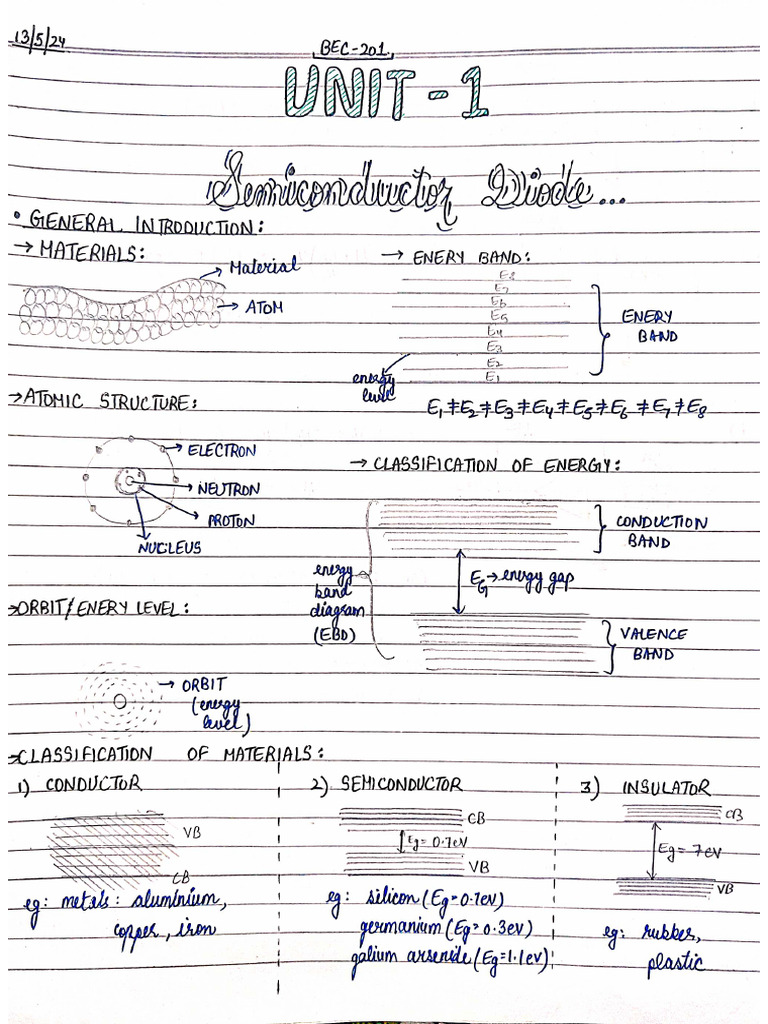 13/5/24
BEC-201
UNIT-1
Semiconductor Diode...
• GENERAL INTRODUCTION:
→ MATERIALS:
Material
ATOM
→ ENERY BAND:
E8
E7
E6
E5
E4
E3
E2
E1
ENERY
BAND
energy
level
E1 ≠ E2 ≠ E3 ≠ E4 ≠ E5 ≠ E6 ≠ E7 ≠ E8
→ ATOMIC STRUCTURE:
ELECTRON
NEUTRON
PROTON
NUCLEUS
→ CLASSIFICATION OF ENERGY:
CONDUCTION
BAND
EG → energy gap
energy
band
diagram
(EBD)
VALENCE
BAND
→ ORBIT/ENERY LEVEL:
ORBIT
(energy
level)
→ CLASSIFICATION OF MATERIALS:
1) CONDUCTOR
VB
CB
eg: metals: aluminium,
copper, iron
2) SEMICONDUCTOR
CB
Eg = 0.7eV
VB
eg: silicon (Eg=0.7eV)
germanium (Eg=0.3eV)
galium arsenide (Eg=1.1eV)
3) INSULATOR
CB
Eg = 7eV
VB
eg: rubber,
plastic